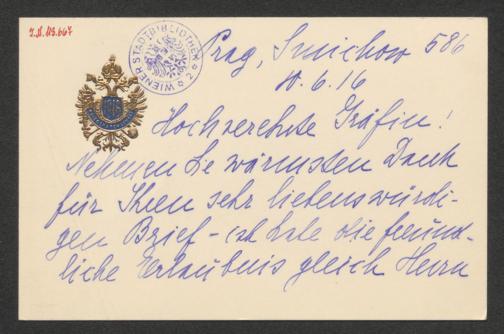 J.N. 115.667
WIENER STADTBIBLIOTHEK
Prag, Smichow 586
10.6.16
Hochverehrte Gräfin!
Nehmen Sie wärmsten Dank
für Ihren sehr liebenswürdi-
gen Brief - ich habe die freund-
liche Erlaubnis gleich Herrn